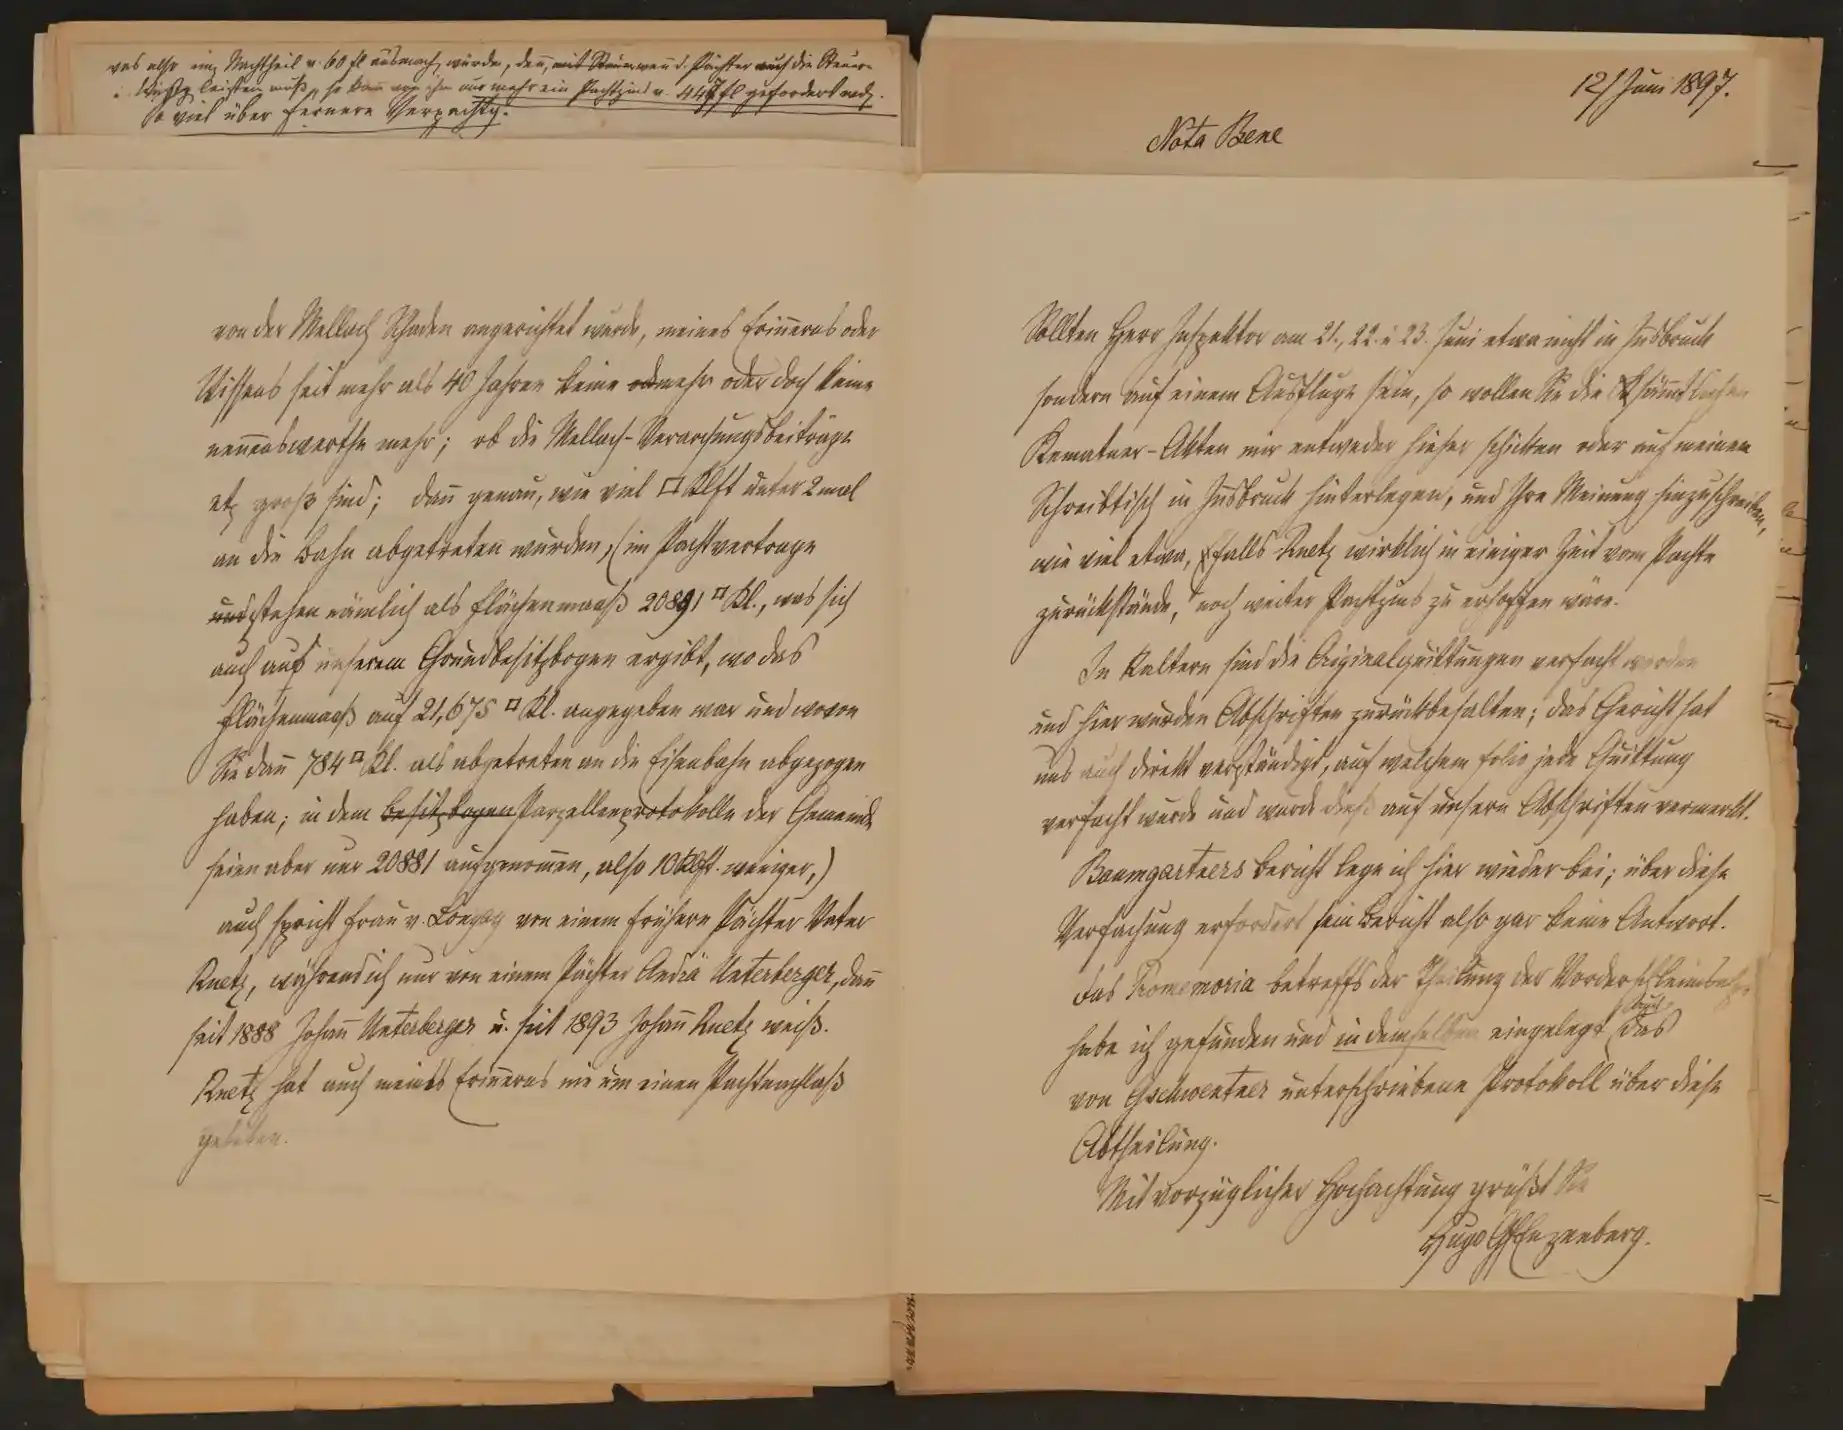 was also ein Nachtheil v. 60 fl ausmach würde, den, mit Steuer wenn d. Pächter auch die Steuer
leisten muß, so kann von ihm nur mehr ein Pachtzins v. 447 fl gefordert wdn.
So viel über fernere Verpachtg.
12/ Juni 1897.
Nota Bene
von der Mellach Schaden angerichtet wurde, meines Erinnerns oder
Wissens seit mehr als 40 Jahren keine od mehr oder doch keine
nennenswerthe mehr; ob die Mellach-Verarchungsbeiträge
etz groß sind; dann genau, wie viel □ Klft unter 2 mal
an die Bahn abgetreten wurden, (im Pachtvertrage
und stehen nämlich als Flächenmaaß 20891 □ Kl., was sich
auch aus unserem Grundbesitzbogen ergibt, wo das
Flächenmaaß auf 21,675 □ Kl. angegeben war und wovon
Sie dann 784 □ Kl. als abgetreten an die Eisenbahn abgezogen
haben; in dem Besitzbogen Parzellenprotokolle der Gemeinde
seien aber nur 20881 aufgenommen, also 10 Klft. weniger,)
auch spricht Frau v. Longay von einem frühern Pächter Vater
Ruetz, während ich nur von einem Pächter Andrä Unterberger, dann
seit 1888 Johann Unterberger u. seit 1893 Johann Ruetz weiß.
Ruetz hat auch meines Erinnerns nie um einen Pachtnachlaß
gebeten.
Sollten Herr Inspektor am 21., 22. u 23. Juni etwa nicht in Insbruck
sondern auf einem Ausfluge sein, so wollen Sie die sämmtlichen
Kematner-Akten mir entweder hieher schicken oder auf meinen
Schreibtisch in Insbruck hinterlegen, und Ihre Meinung hinzuschreiben,
wie viel etwa, falls Ruetz wirklich in einiger Zeit vom Pachte
zurückstände, noch weiter Pachtzins zu erhoffen wäre.
In Kaltern sind die Originalquittungen verfacht worden
und hier wurden Abschriften zurückbehalten; das Gericht hat
uns auch direkt verständigt, auf welchem folio jede Quittung
verfacht wurde und wurde dieß auf unsern Abschriften vermerkt.
Baumgartners Bericht lege ich hier wieder bei; über diese
Verfachung erfordert sein Bericht also gar keine Antwort.
Das Promemoria betreffs der Theilung der
habe ich gefunden und in demselben eingelegt auch das
von Gschwentner unterschriebene Protokoll über diese
Abtheilung.
Mit vorzüglicher Hochachtung grüßt Sie
Hugo Gf Enzenberg.